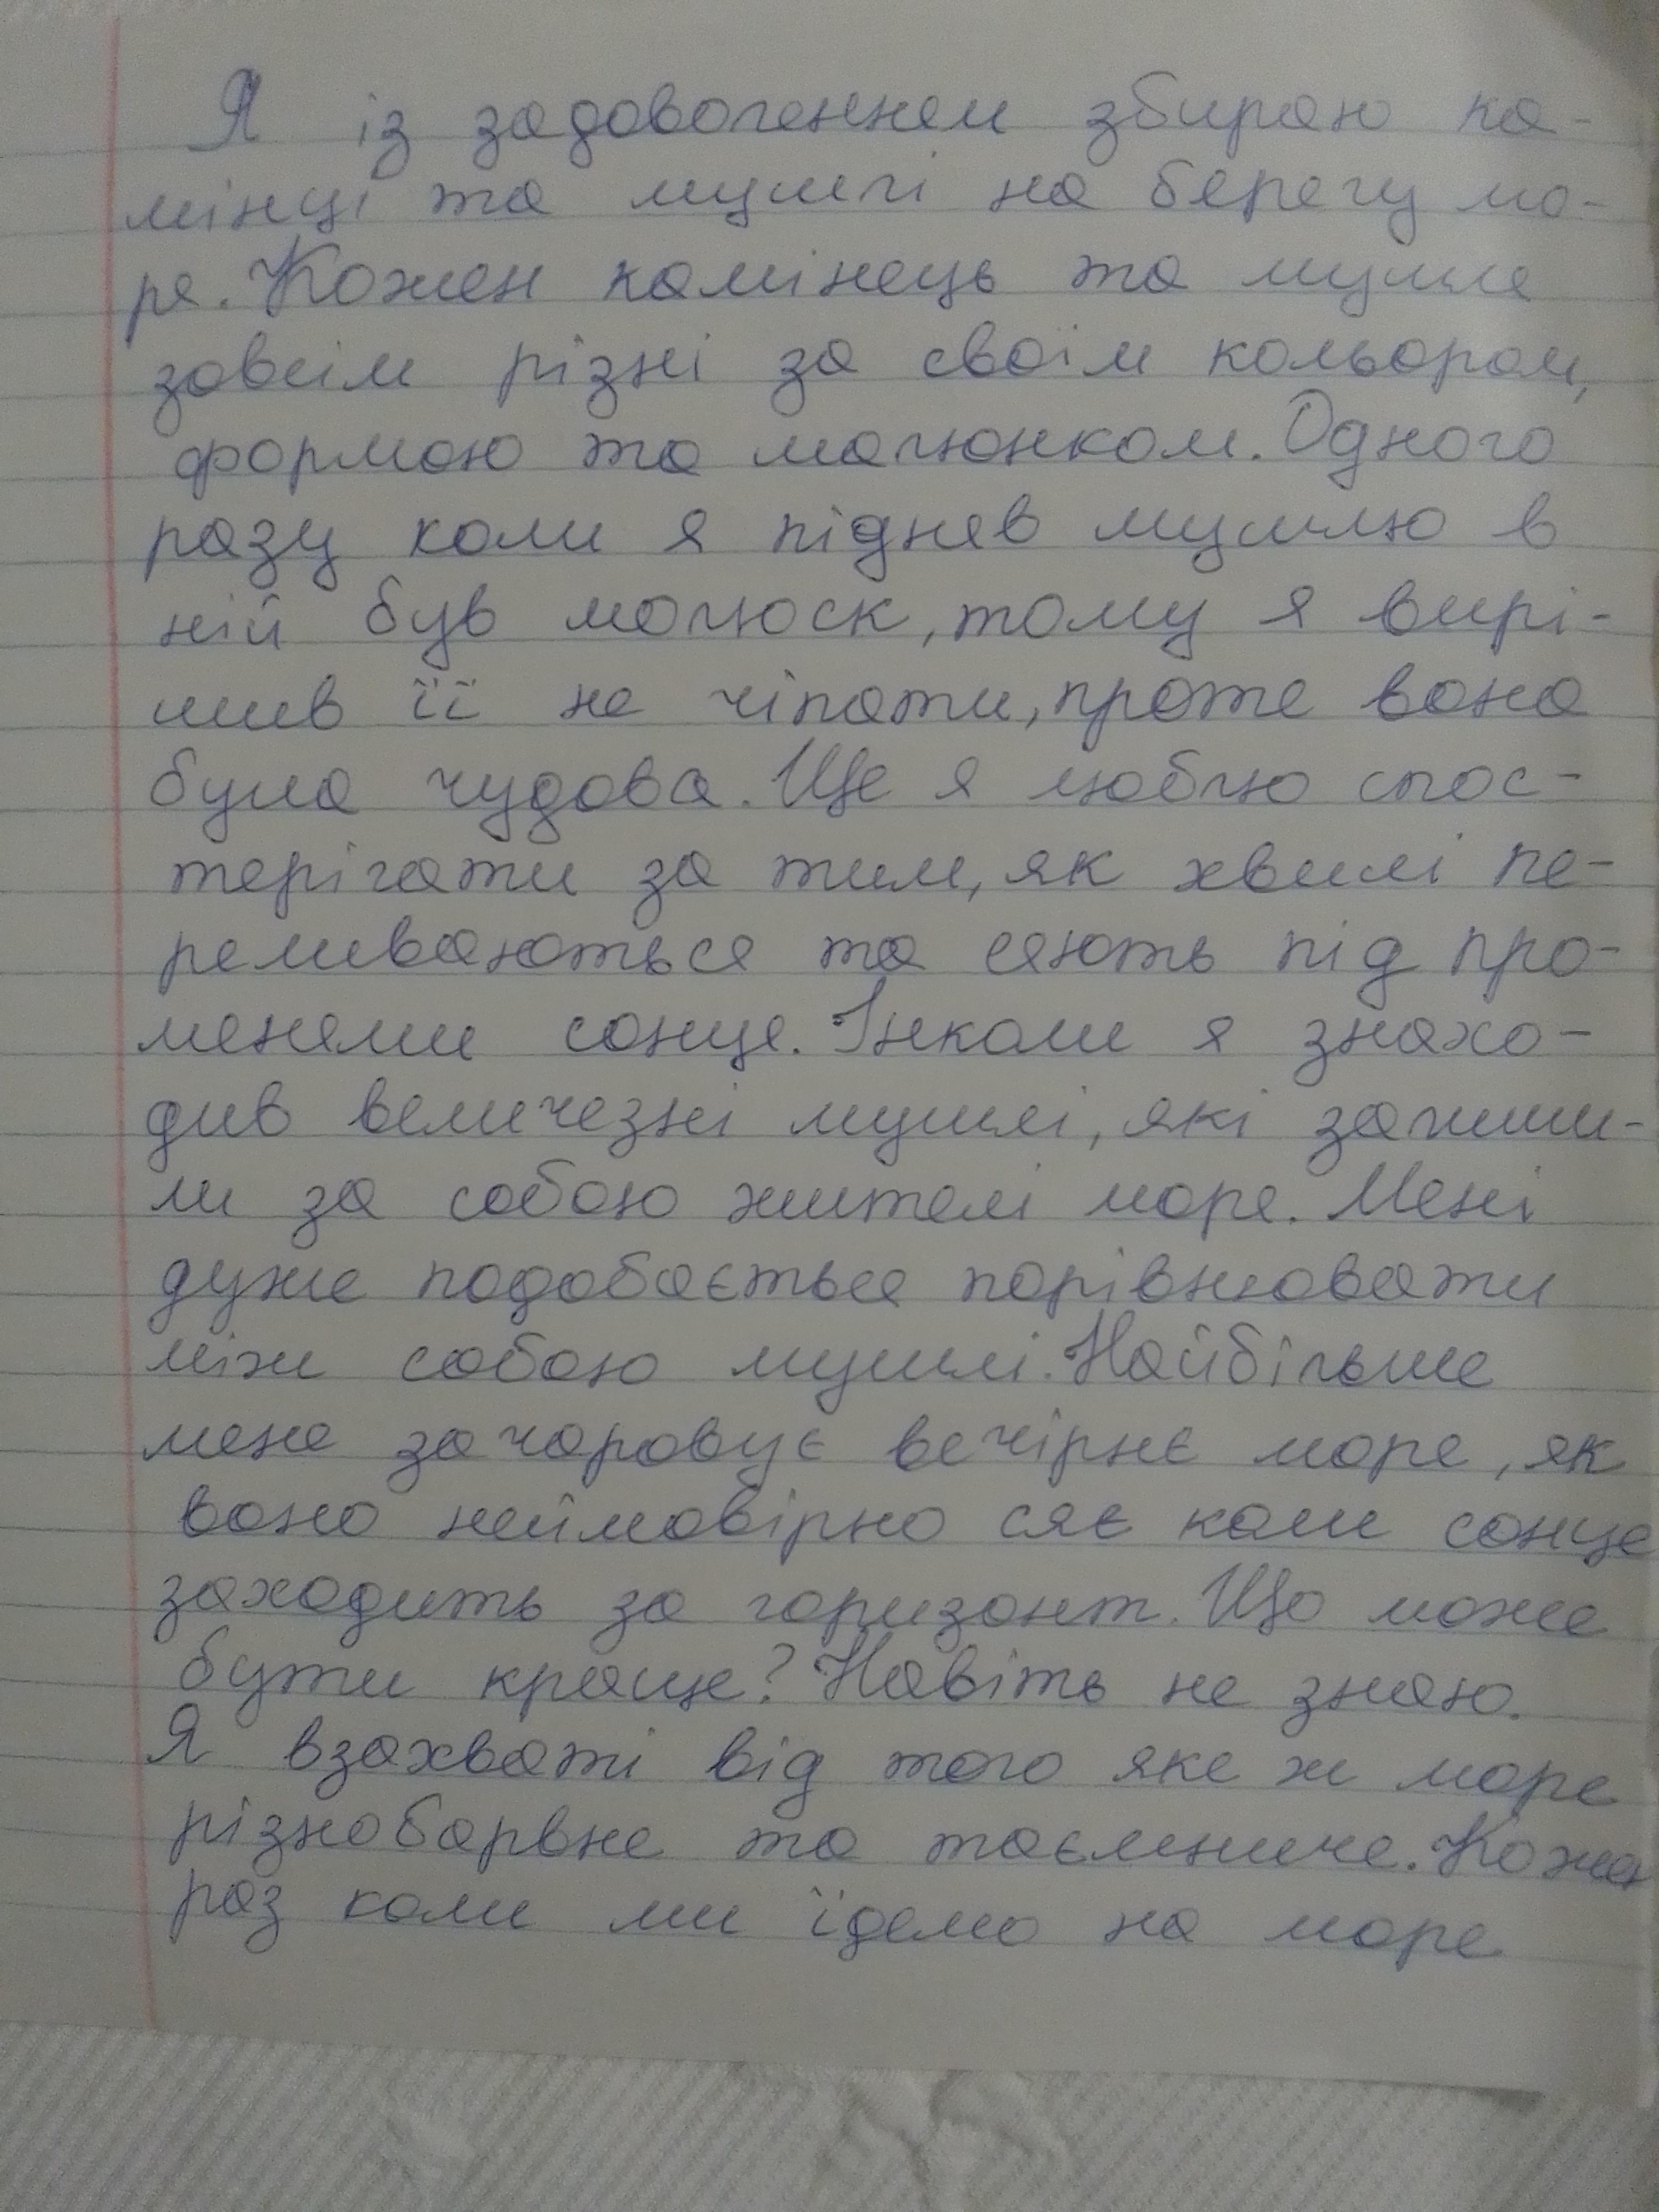 Я із задоволенням збираю ка-
мінці та мушлі на берегу мо-
ря. Кожен камінець та мушля
зовсім різні за своїм кольором,
формою та малюнком. Одного
разу коли я підняв мушлю в
ній був молюск, тому я вирі-
шив її не чіпати, проте вона
була чудова. Ще я люблю спос-
терігати за тим, як хвилі пе-
реливаються та сяють під про-
менями сонця. Інколи я знахо-
див величезні мушлі, які залиши-
ли за собою жителі моря. Мені
дуже подобається порівнювати
між собою мушлі. Найбільше
мене зачаровує вечірнє море, як
воно неймовірно сяє коли сонце
заходить за горизонт. Що може
бути краще? Навіть не знаю.
Я взахваті від того яке ж море
різнобарвне та таємниче. Кожен
раз коли ми їдемо на море